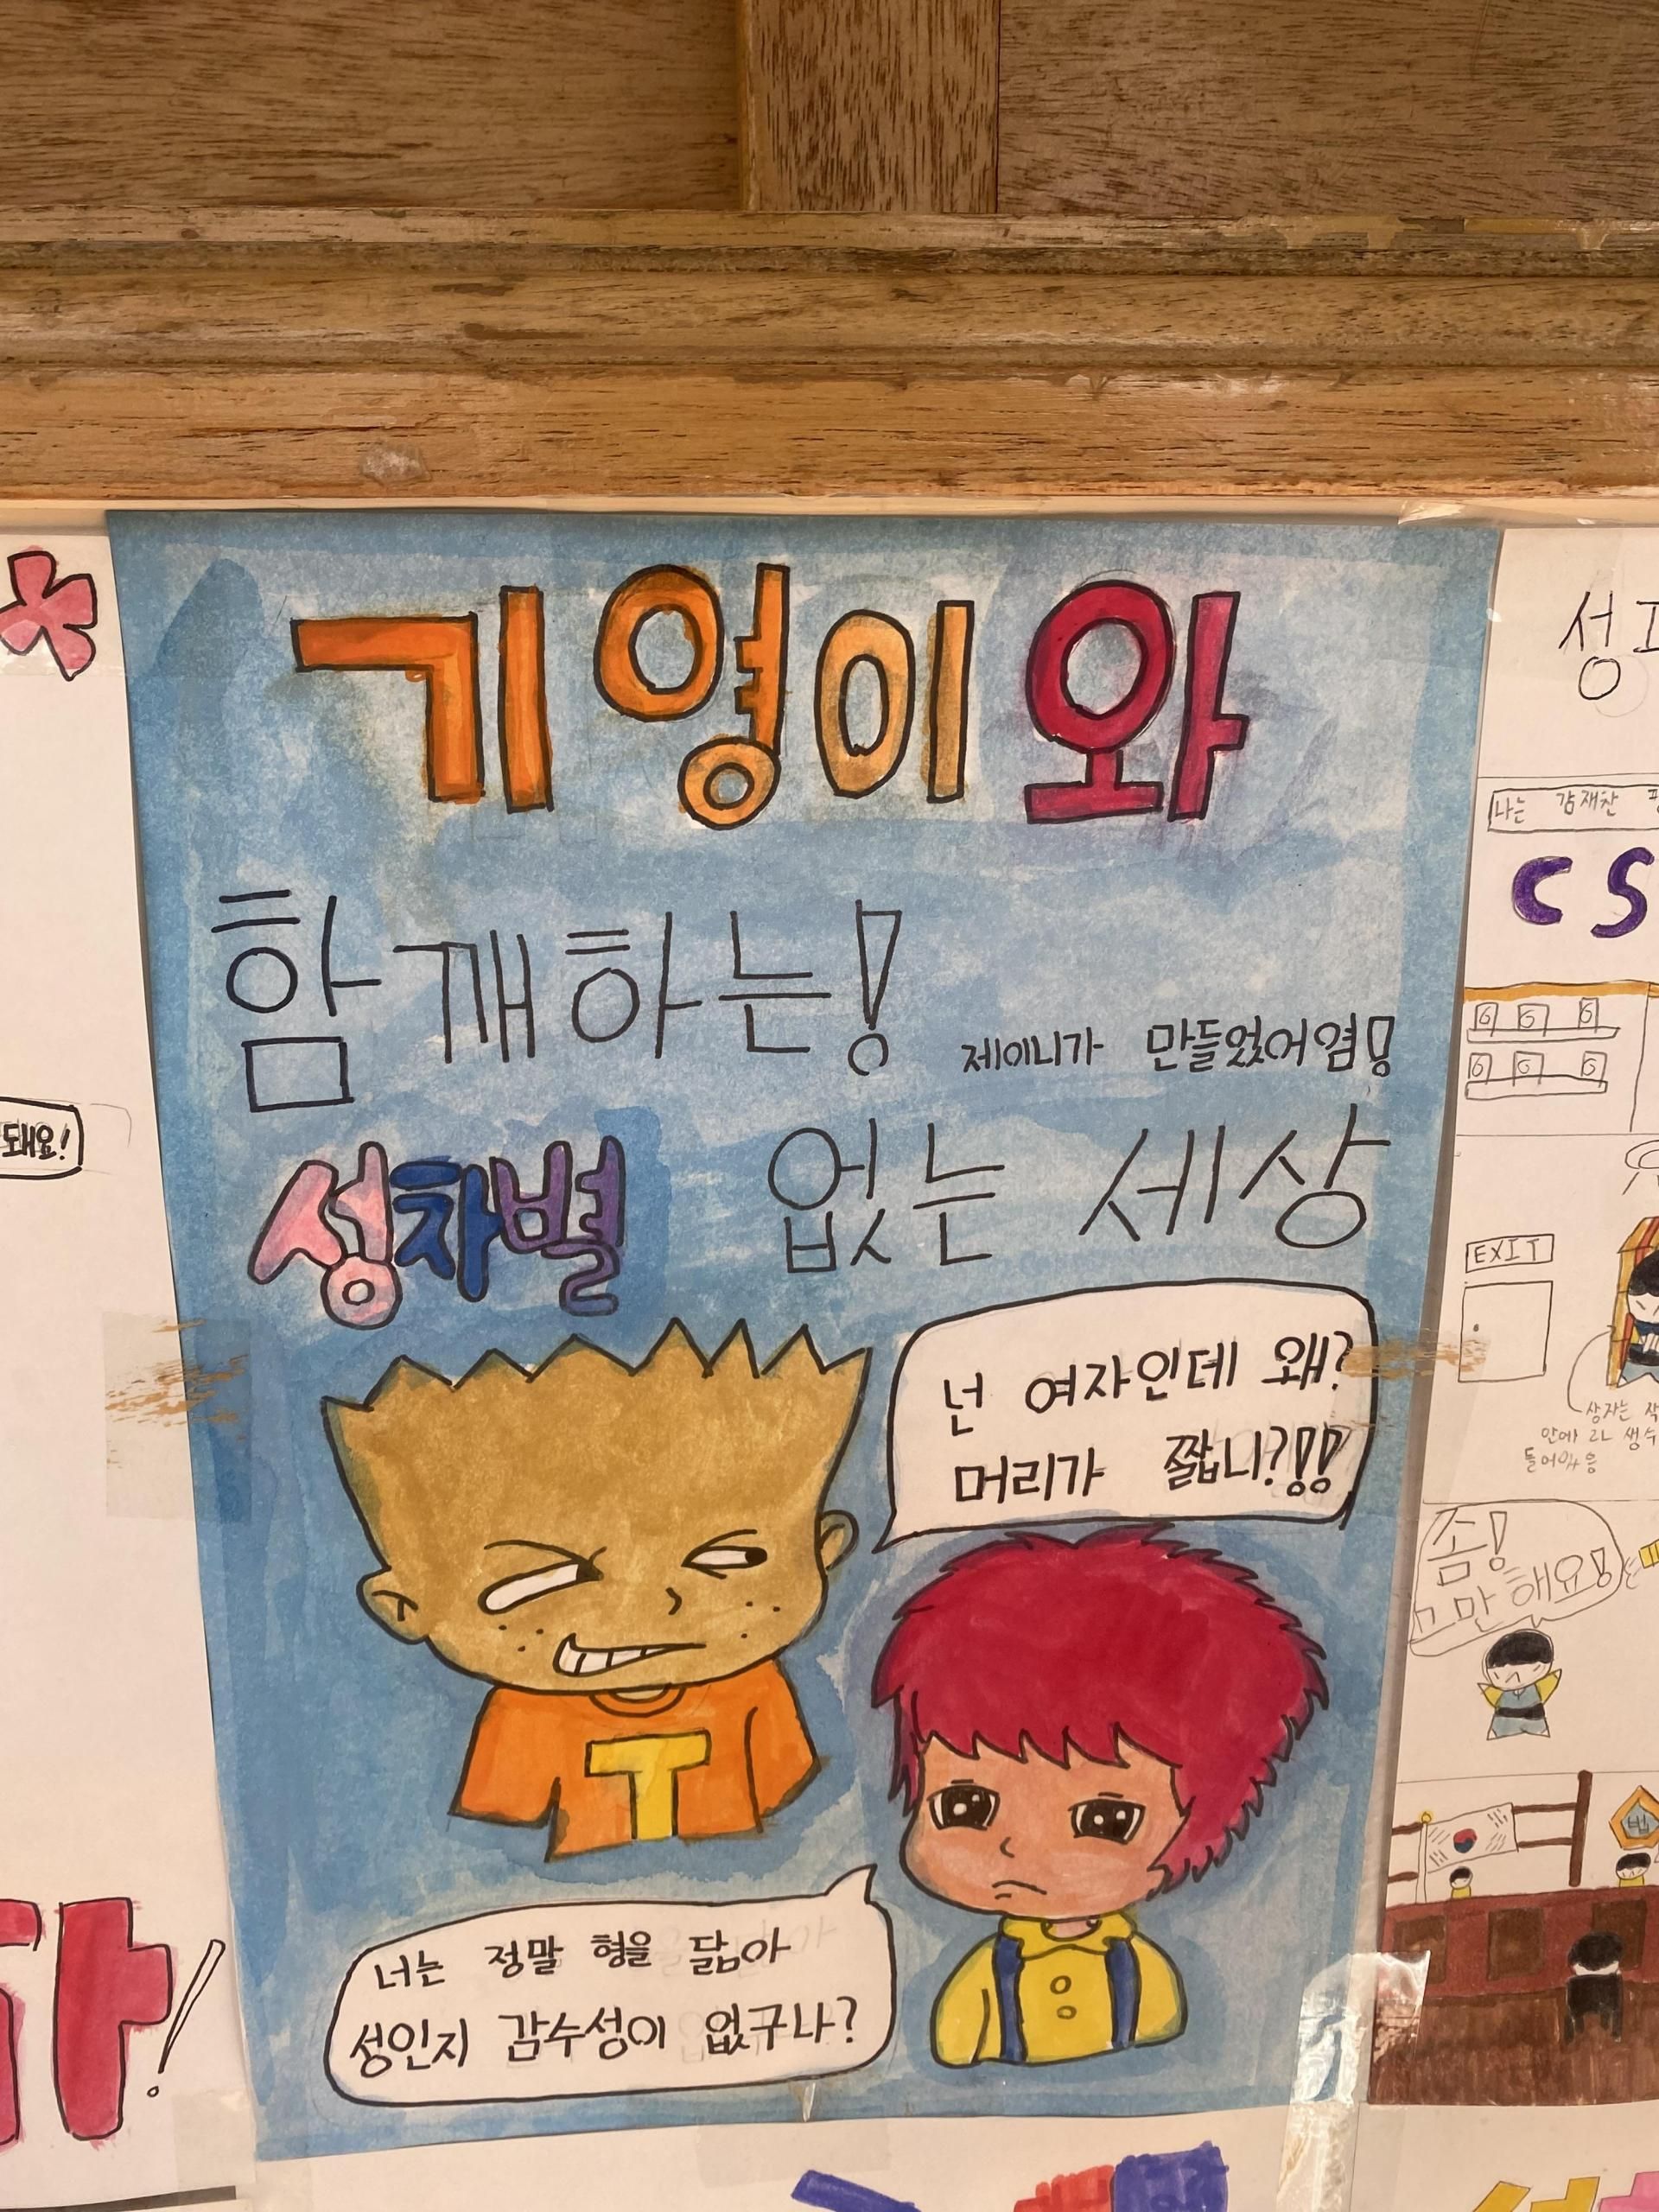 기영이와
함깨하는!
제이니가 만들었어염!
성차별 없는 세상
넌 여자인데 왜?
머리가 짧니?!!
너는 정말 형을 닮아
성인지 감수성이 없구나?
돼요!
성
나는 김재찬
CS
EXIT
상자는
안에
들어있음
좀!
그만해요!
법